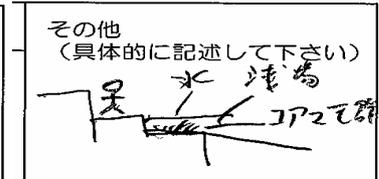 その他
(具体的に記述して下さい)
水
浅場
コアマモ